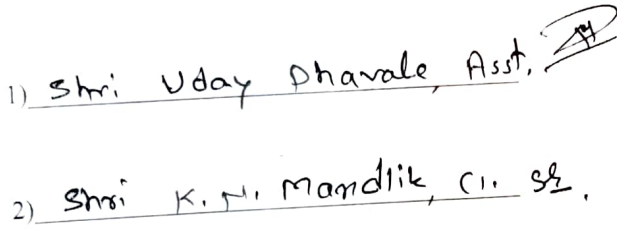 1) Shri Uday Dhavale, Asst.
2) Shri K. N. Mandlik, Cl.